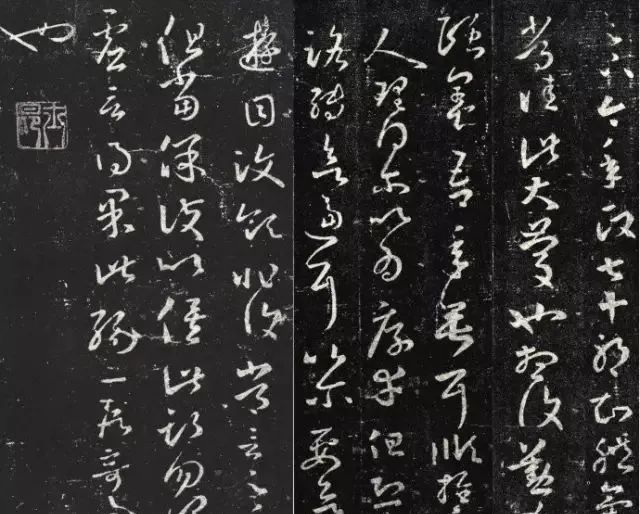 足下今年政七十耶知體氣
常佳此大慶也想復懃
頤養吾年垂耳順推
人理得爾以為厚幸但恐
路轉欲逼耳以爾要欲
遊目汶領非復常言足下
但當保護以俟此期勿謂
虛言得果此緣一段奇
也